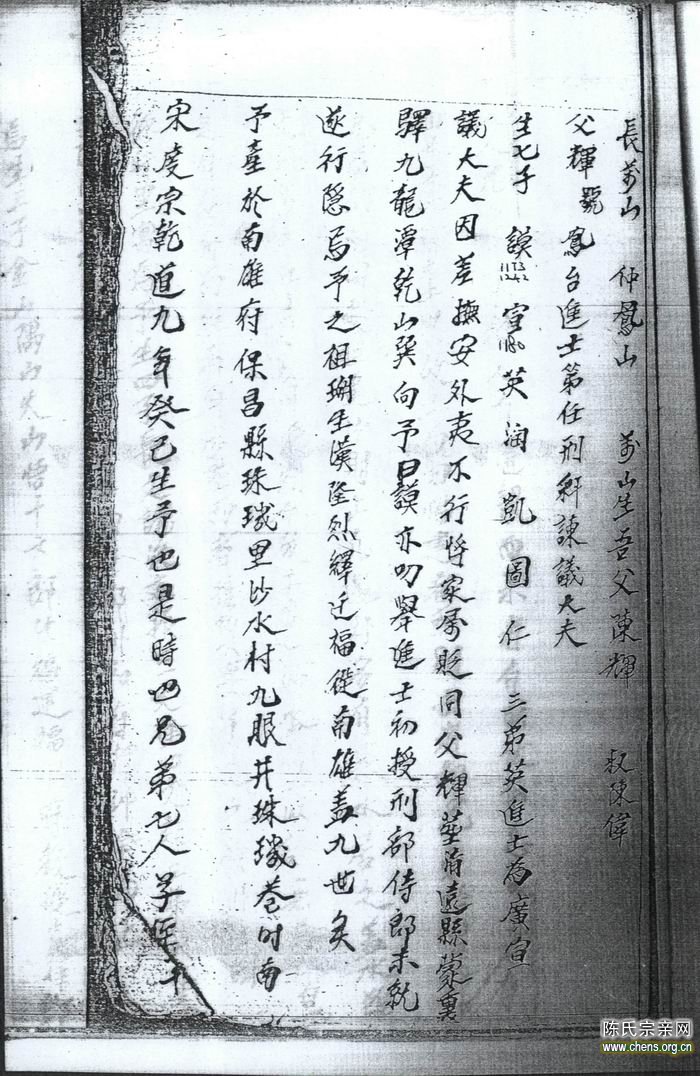 長萬山 仲鳳山 萬山生吾父陳輝 叔陳偉
父輝號鳳台進士第任刑科諫議大夫
生七子 謨 英 凱 圖 仁 三弟英進士為廣宣
議大夫因差撫安外夷不行將家屬貶同父輝葬清遠縣
驛九龍潭乾山巽向予曰謨亦叨舉進士初授刑部侍郎未就
遂行隱焉予之祖瑚生漢隆烈繹迁福徙南雄盖九世矣
予臺於南雄府保昌縣珠璣里沙水村九眼井珠璣巷时南
宋度宗乾道九年癸巳生予也是時四兄弟七人
陈氏宗亲网
www.chens.org.cn